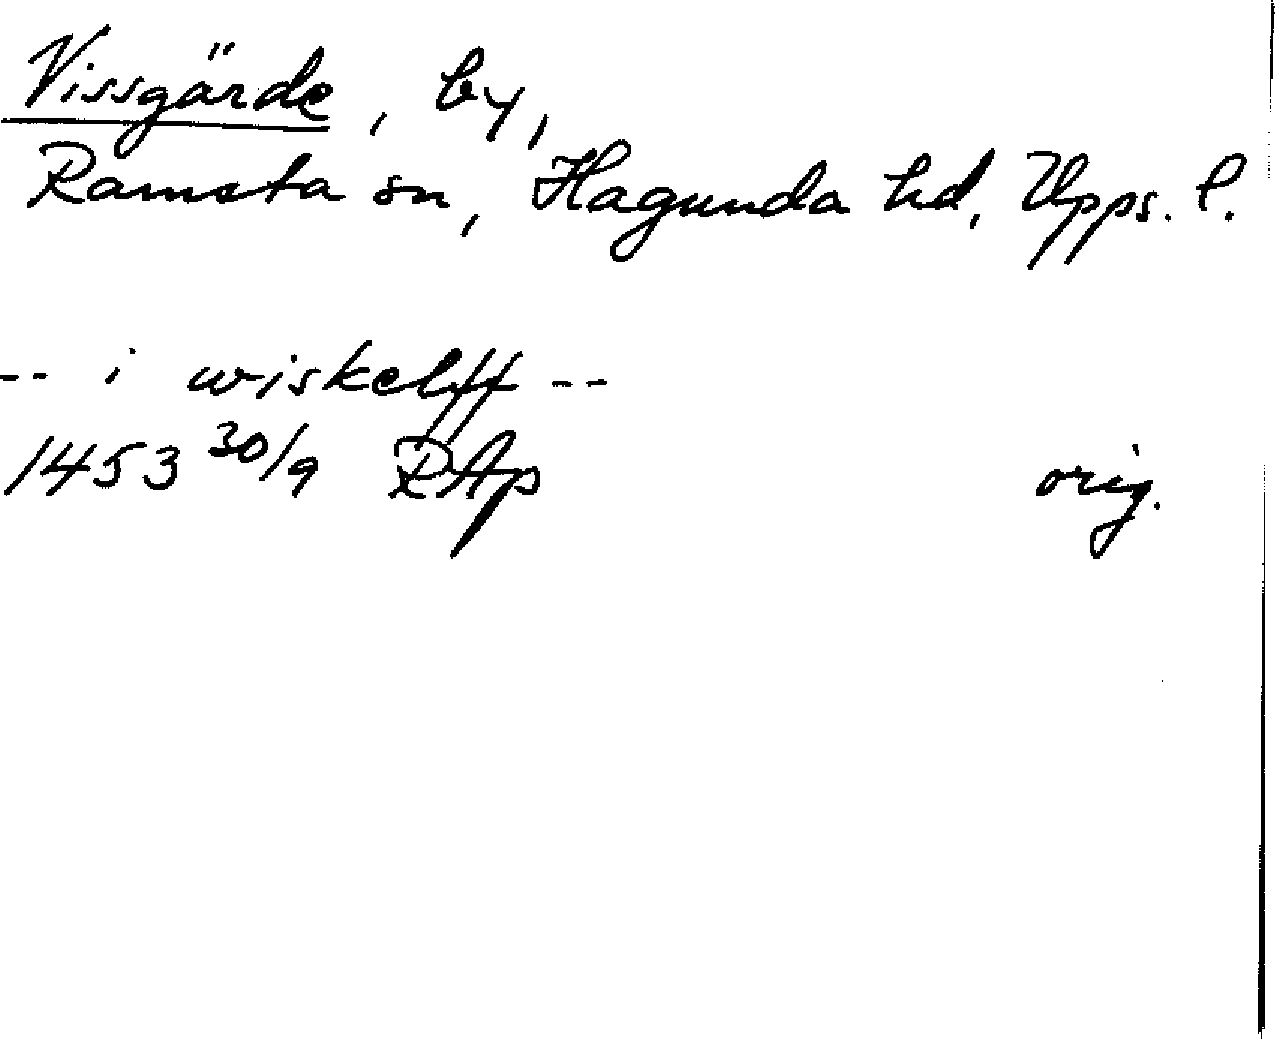 Vissgärde, by,
Ramsta sn, Hagunda hd, Upps. l.
-- i wiskelff --
1453 30/9 RAp orig.